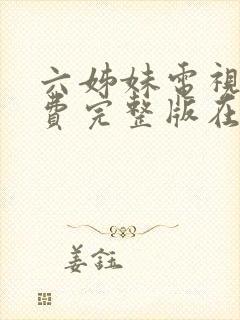 六姊妹電視
費完整版在
姜鈺